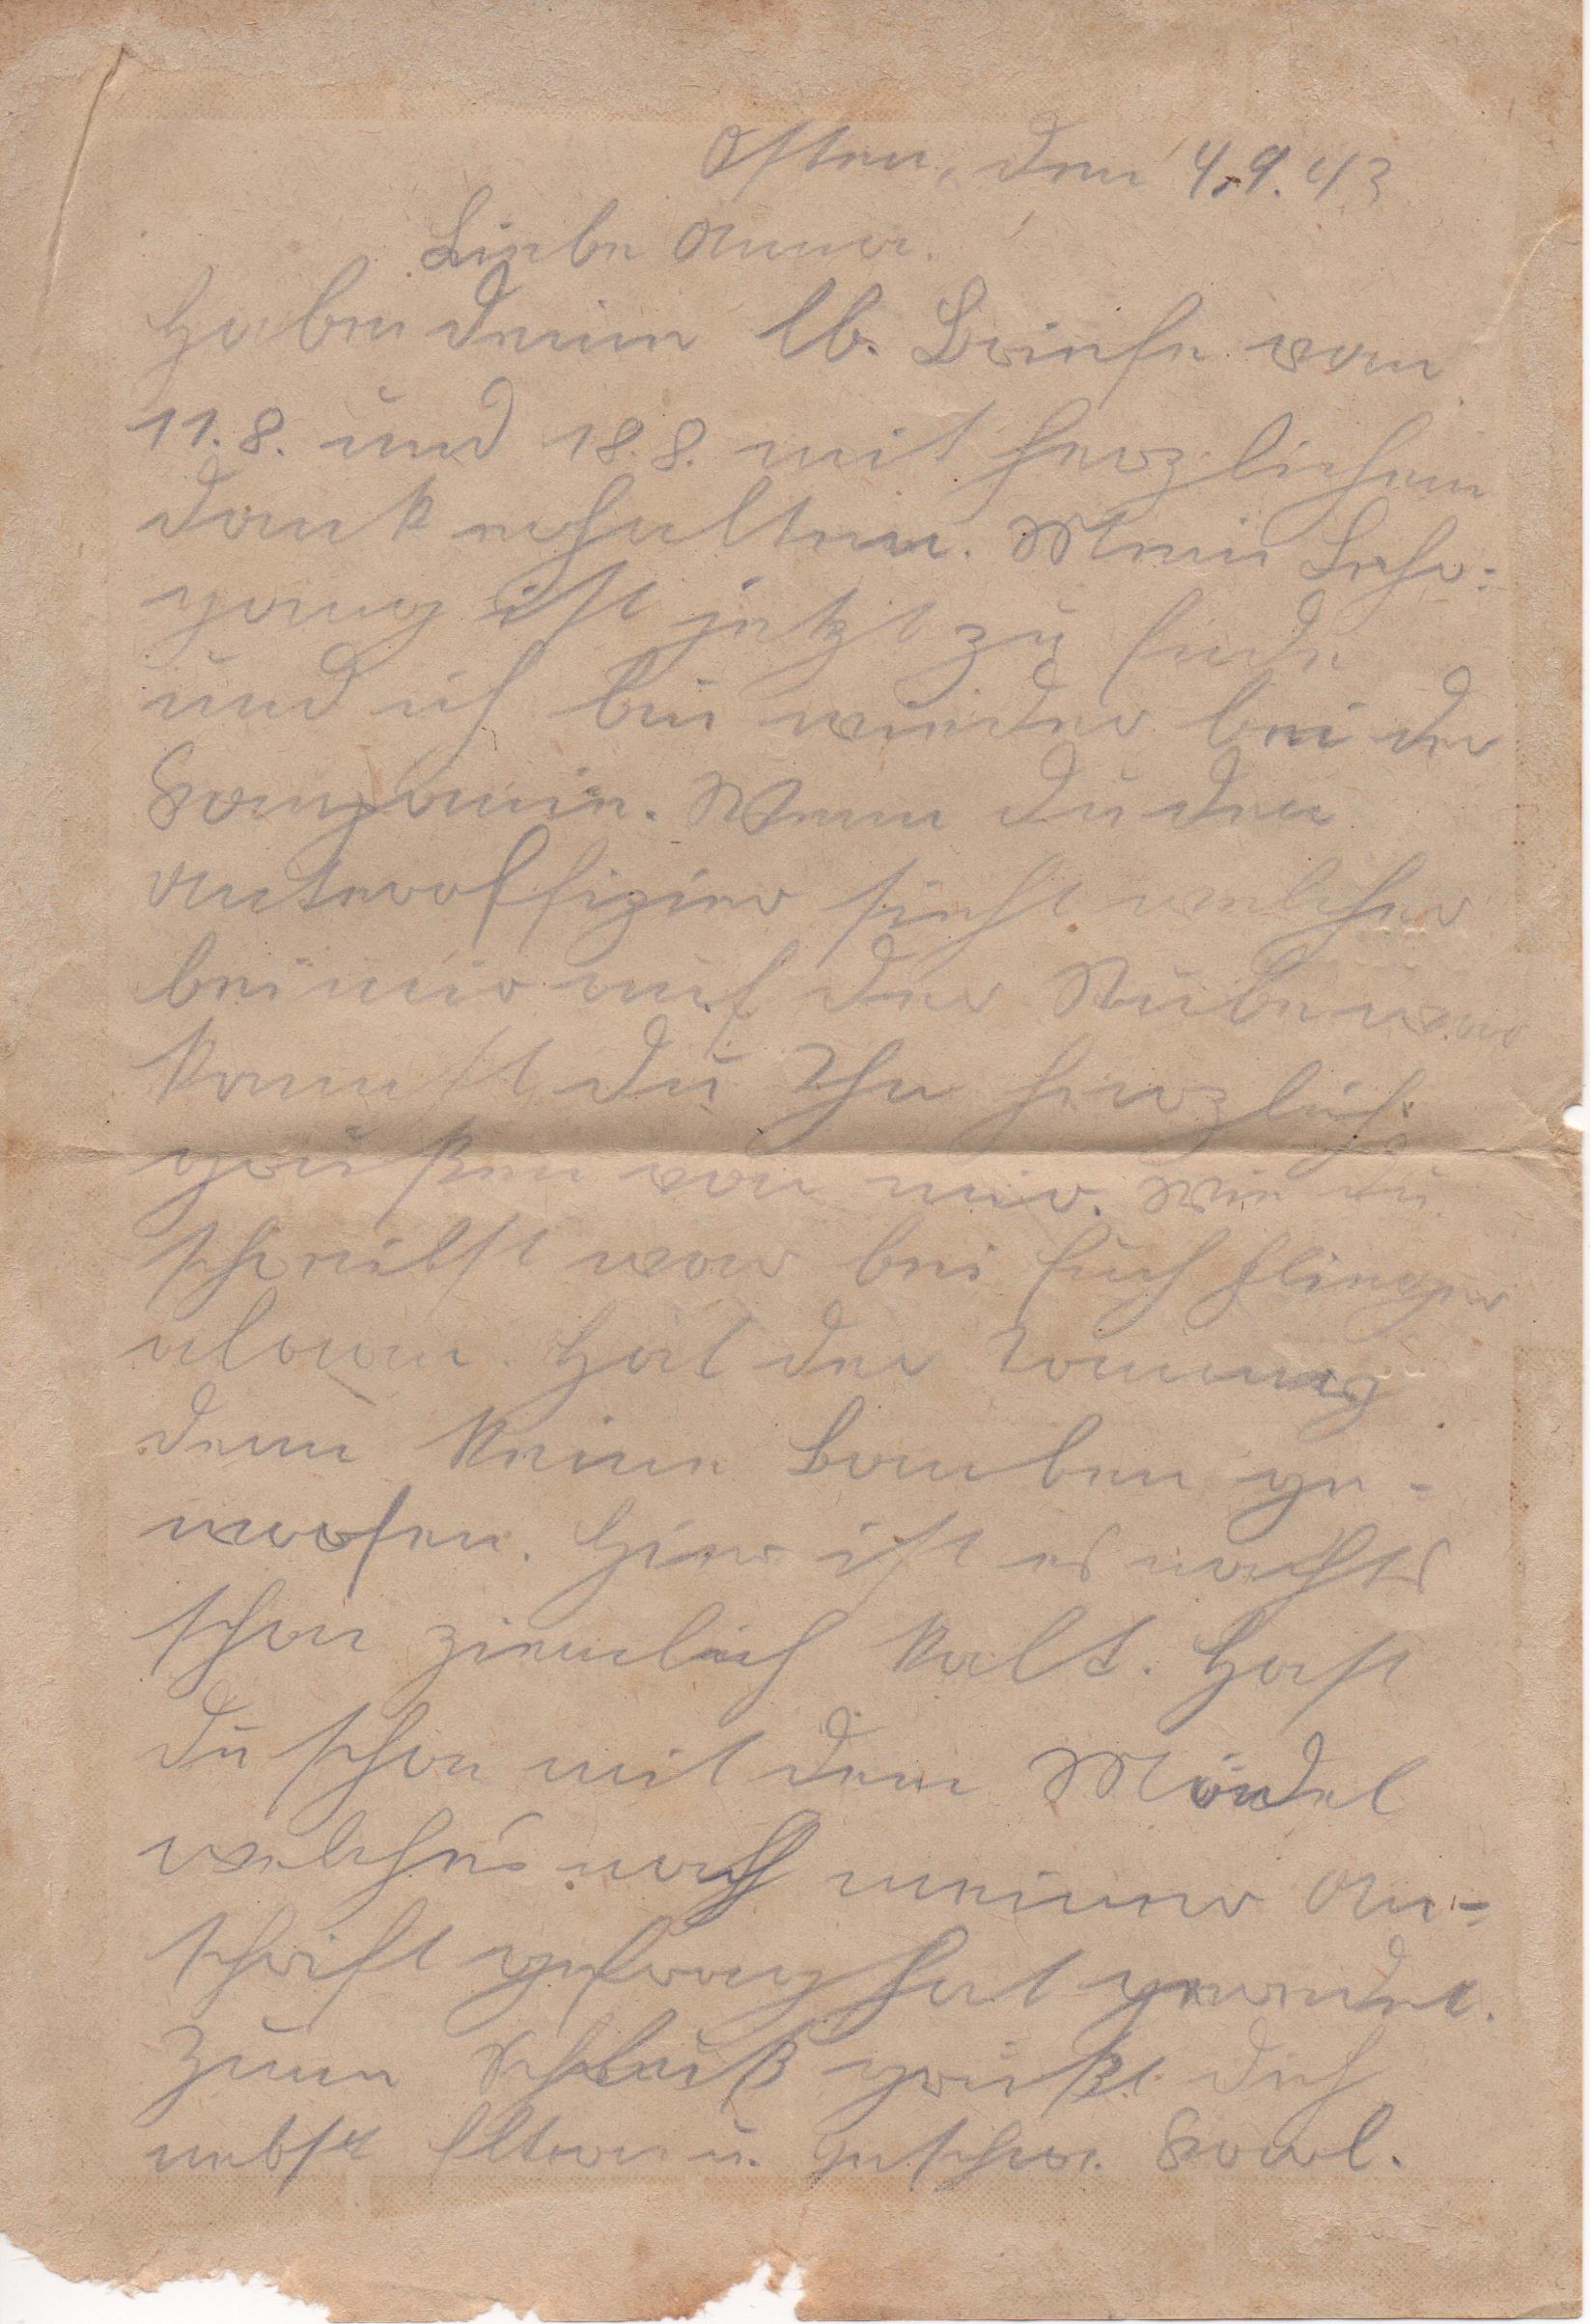 Osten, den 4.9.43
Liebe Anna.
Habe deine lb. Briefe vom
11.8. und 18.8. mit herzlichem
Dank erhalten. Mein Lehr-
gang ist jetzt zu Ende
und ich bin wieder bei der
Kompanie. Wenn du den
Unteroffizier siehst welcher
bei mir auf der Stube war
kannst du Ihn herzlich
grüßen von mir. Wie du
schreibst war bei Euch Flieger
alarm. Hat der Tommy
denn keine Bomben ge-
worfen. Hier ist es nachts
schon ziemlich kalt. Hast
du schon mit dem Mädel
welches nach meiner An-
schrift gefragt hat geredet.
Zum Schluß grüßt dich
nebst Eltern u. Geschw. Karl.